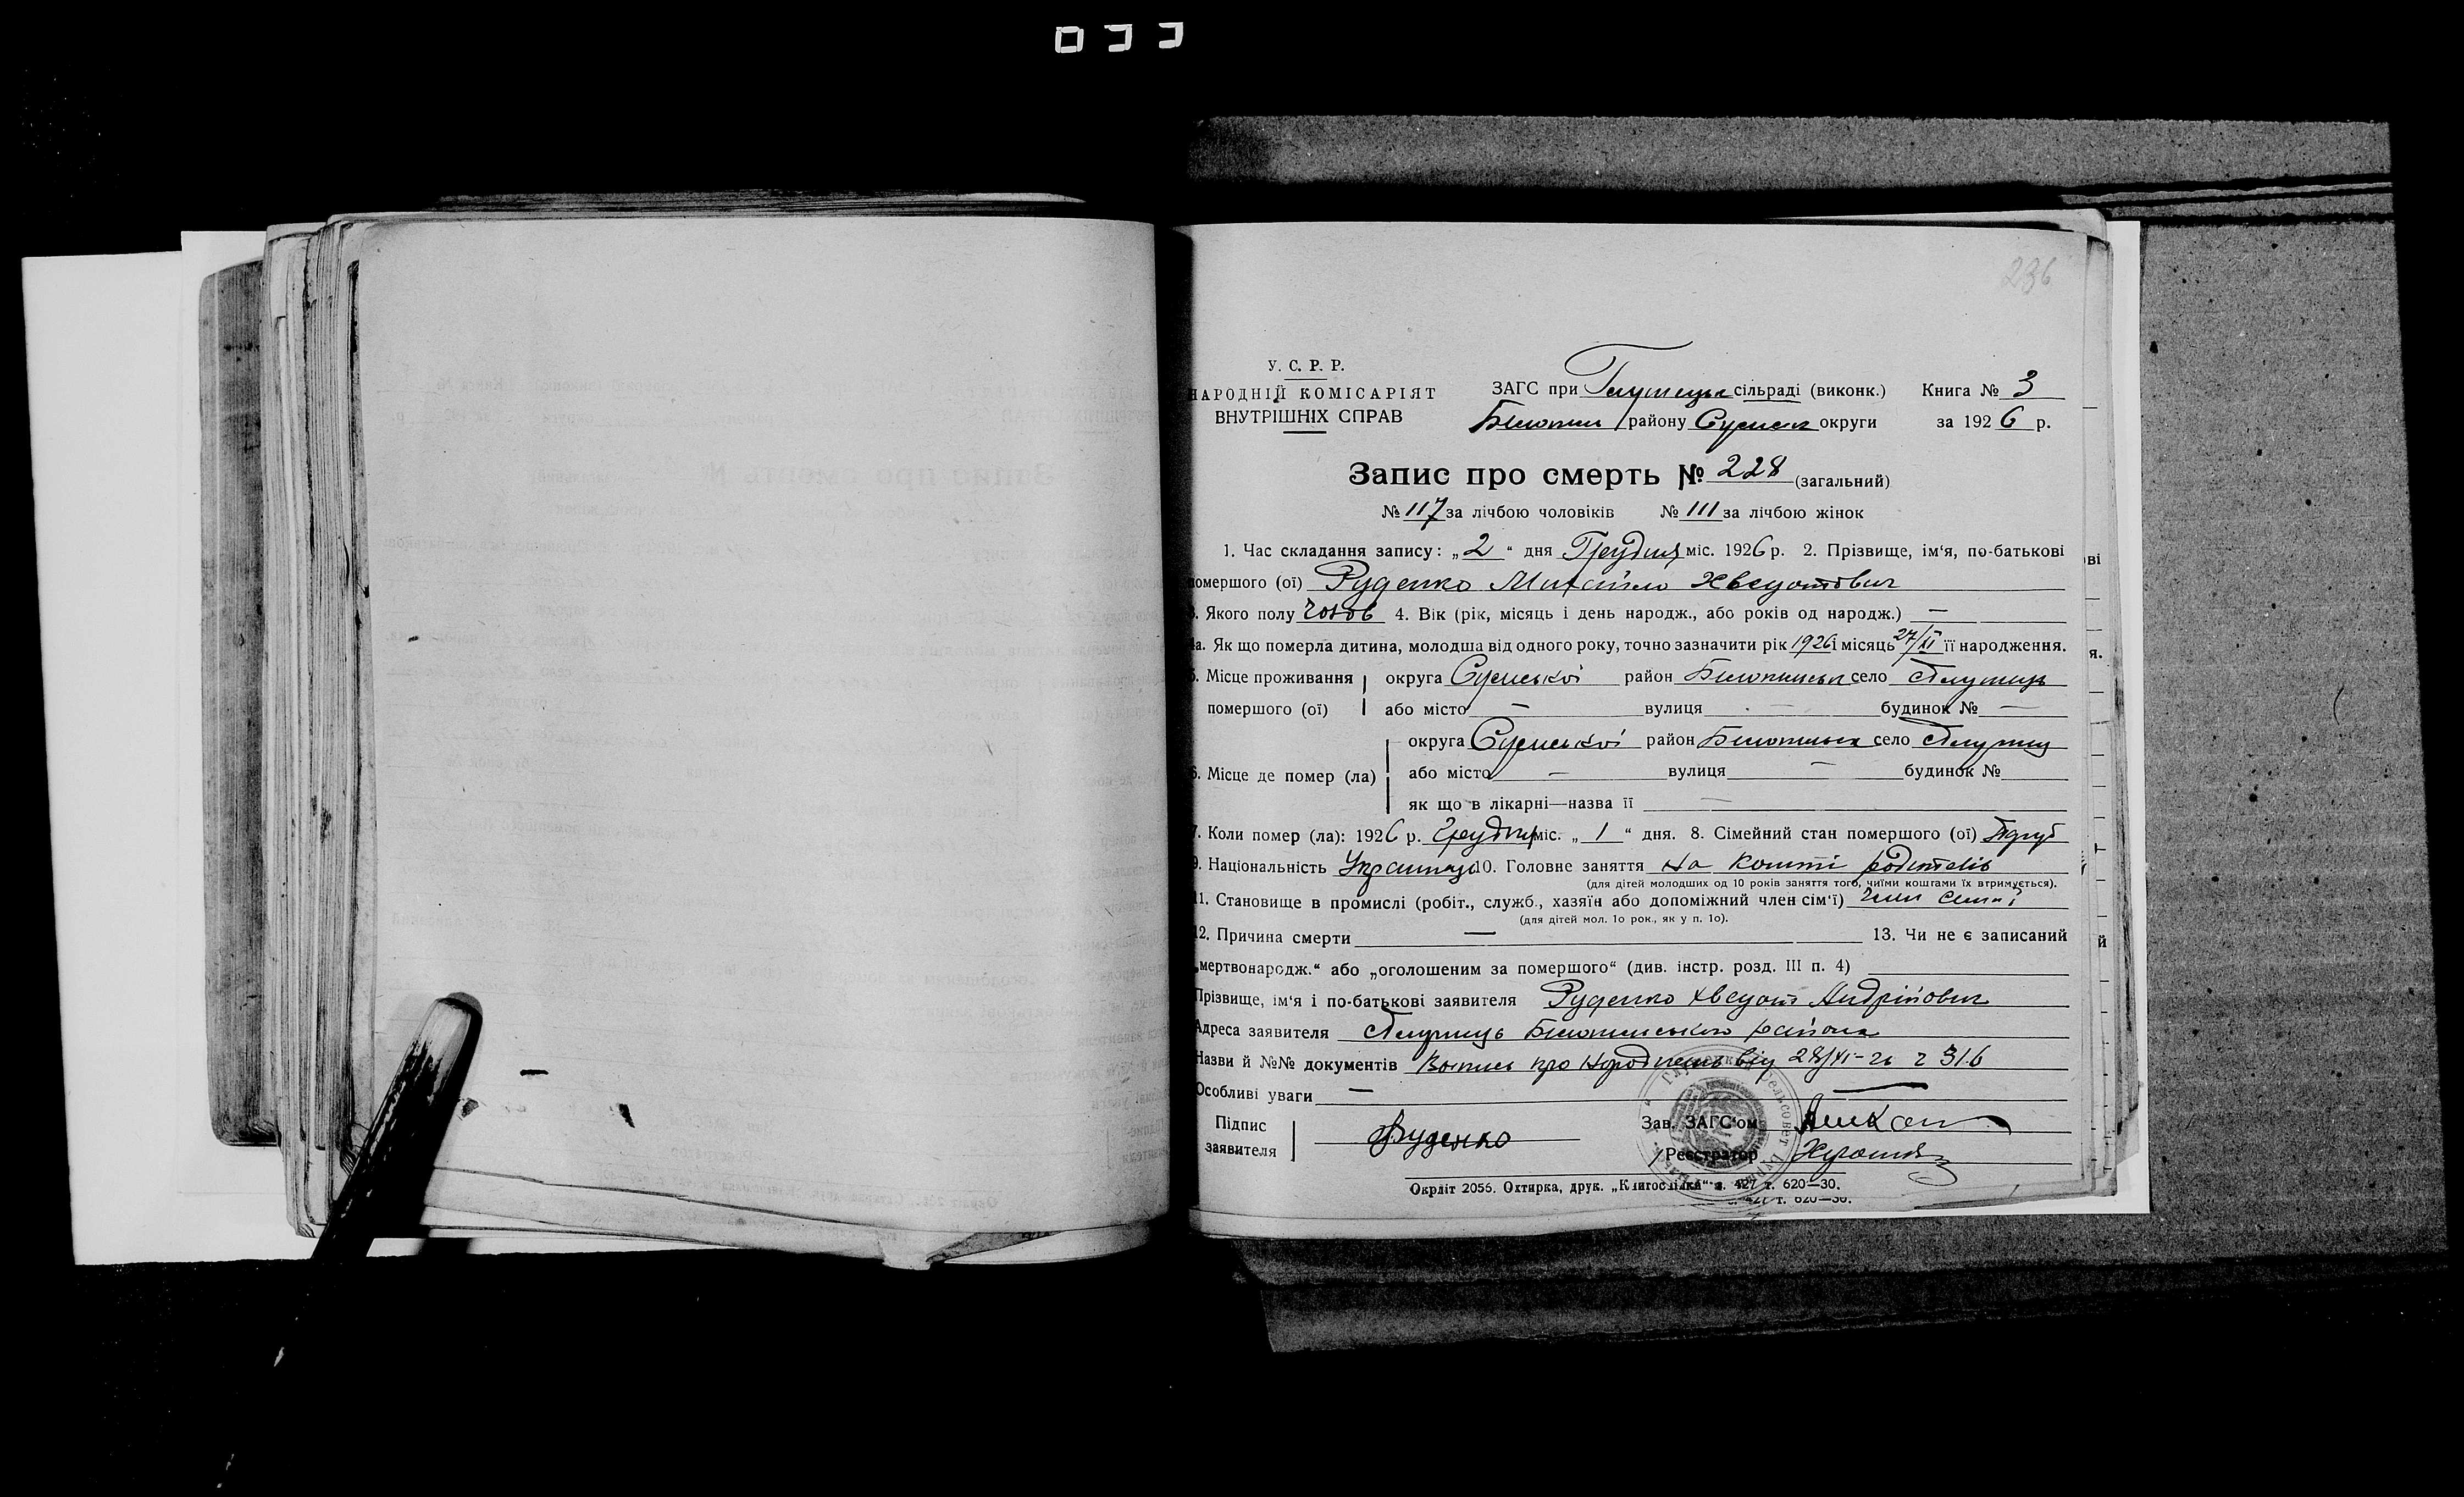 236
У. С. Р. Р.
НАРОДНІЙ КОМІСАРІЯТ
ВНУТРІШНІХ СПРАВ
ЗАГС при Глушецьк сільраді (виконк.) Книга № 3
району Сумськ округи за 1926 р.
Запис про смерть № 228 (загальний)
№ 117 за лічбою чоловіків № 111 за лічбою жінок
1. Час складання запису: „2“ дня Грудня міс. 1926 р. 2. Прізвище, ім‘я, по-батькові
помершого (ої) Руденко Михайло Хведотович
3. Якого полу чолов 4. Вік (рік, місяць і день народж., або років од народж.) —
4а. Як що померла дитина, молодша від одного року, точно зазначити рік 1926 і місяць 27/XI її народження.
5. Місце проживання округа Сумської район село
помершого (ої) або місто — вулиця — будинок № —
округа Сумської район село
6. Місце де помер (ла) або місто — вулиця — будинок №
як що в лікарні—назва її —
7. Коли помер (ла): 1926 р. Грудня міс. „1“ дня. 8. Сімейний стан помершого (ої)
9. Національність Українець 10. Головне заняття На кошті родителів
(для дітей молодших од 10 років заняття того, чиїми коштами їх втримується).
11. Становище в промислі (робіт., служб., хазяїн або допоміжний член сім‘ї) член семї
(для дітей мол. 1о рок., як у п. 1о).
12. Причина смерти — 13. Чи не є записаний
„мертвонародж.“ або „оголошеним за помершого“ (див. інстр. розд. III п. 4)
Прізвище, ім‘я і по-батькові заявителя Руденко Хведот Андрійович
Адреса заявителя району
Назви й №№ документів Выпись про народження від 28/XI-26 ч 316
Особливі уваги —
Підпис
заявителя Руденко
Зав. ЗАГС‘ом
Реєстратор
Окрліт 2056. Охтирка, друк. „Книгоспілка“ з. 427 т. 620—30.